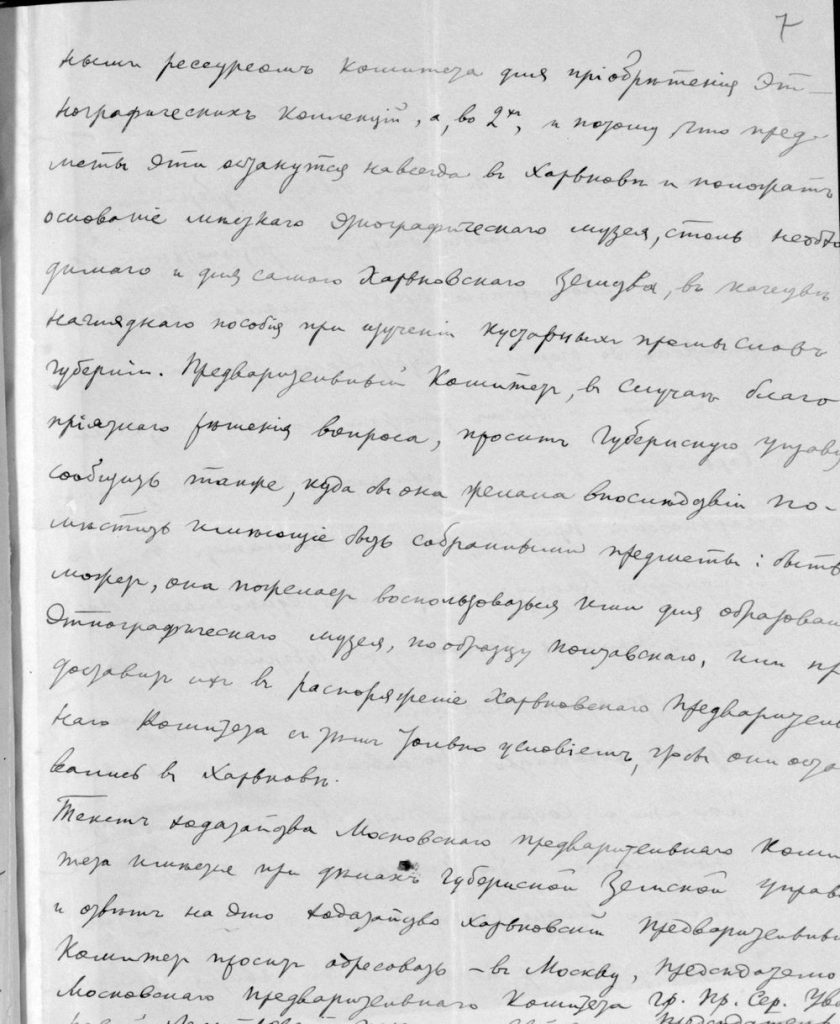 7
ными рессурсомъ Комитета для пріобрѣтенія Эт-
нографическихъ Коллекцій, а, во 2хъ, и потому что пред-
меты эти останутся навсегда въ Харьковѣ и положатъ
основаніе мѣстнаго этнографическаго музея, столь необхо
димаго и для самого Харьковскаго Земства, въ качествѣ
нагляднаго пособія при изученіи кустарныхъ промысловъ
губерніи. Предварительный Комитетъ, въ случаѣ благо
пріятнаго рѣшенія вопроса, проситъ Губернскую Управу
сообщить также, куда бы она желала впослѣдствіи по-
мѣстить имѣющіе быть собранными предметы: быть
можетъ, она пожелаетъ воспользоваться ими для образован
Этнографическаго музея, по образцу Полтавскаго, или пре
доставитъ ихъ въ распоряженіе Харьковскаго Предварительн
наго Комитета съ тѣмъ только условіемъ, чтобы они оста
вались въ Харьковѣ.
Текстъ ходатайства Московскаго предварительнаго Коми
тета имѣется при дѣлахъ Губернской Земской Управ
и отвѣтъ на это ходатайство Харьковскій Предварительны
Комитетъ проситъ адресовать – въ Москву, Предсѣдателю
Московскаго Предварительнаго Комитета Гр. Пр. Сер. Ува